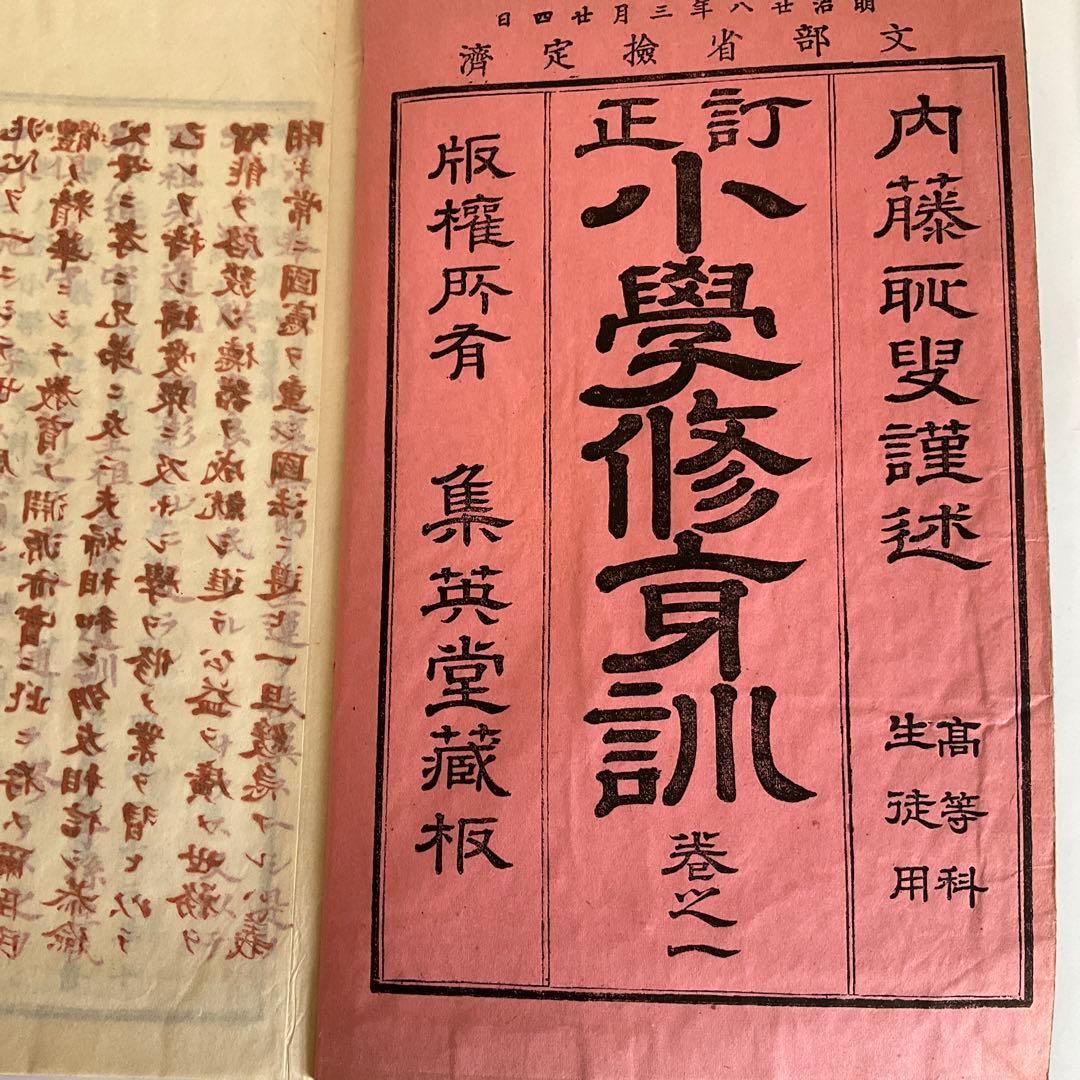 明治廿八年三月廿四日
文部省撿定濟
内藤耻叟謹述
高等科
生徒用
訂正
小學修身訓
卷之一
版權所有
集英堂藏板
兆心ヲ一ニシテ世
體ノ精華ニシテ教育ノ淵源亦實ニ此ニ存ス爾臣民
父母ニ孝ニ兄弟ニ友ニ夫婦相和シ朋友相信シ恭儉
己レヲ持シ博愛衆ニ及ホシ學ヲ修メ業ヲ習ヒ以テ
智能ヲ啓發シ德器ヲ成就シ進テ公益ヲ廣メ世務ヲ
開キ常ニ國憲ヲ重シ國法ニ遵ヒ一旦緩急アレハ義